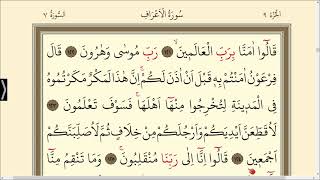 الجزء ٩
سورة الاعراف
السورة ٧
قَالُوا اٰمَنَّا بِرَبِّ الْعَالَمِينَ ﴿١٢١﴾ رَبِّ مُوسٰى وَهٰرُونَ ﴿١٢٢﴾ قَالَ
فِرْعَوْنُ اٰمَنْتُمْ بِه۪ قَبْلَ اَنْ اٰذَنَ لَكُمْ اِنَّ هٰذَا لَمَكْرٌ مَكَرْتُمُوهُ
فِي الْمَد۪ينَةِ لِتُخْرِجُوا مِنْهَٓا اَهْلَهَا فَسَوْفَ تَعْلَمُونَ ﴿١٢٣﴾
لَاُقَطِّعَنَّ اَيْدِيَكُمْ وَاَرْجُلَكُمْ مِنْ خِلَافٍ ثُمَّ لَاُصَلِّبَنَّكُمْ
اَجْمَع۪ينَ ﴿١٢٤﴾ قَالُٓوا اِنَّٓا اِلٰى رَبِّنَا مُنْقَلِبُونَ ﴿١٢٥﴾ وَمَا تَنْقِمُ مِنَّٓا